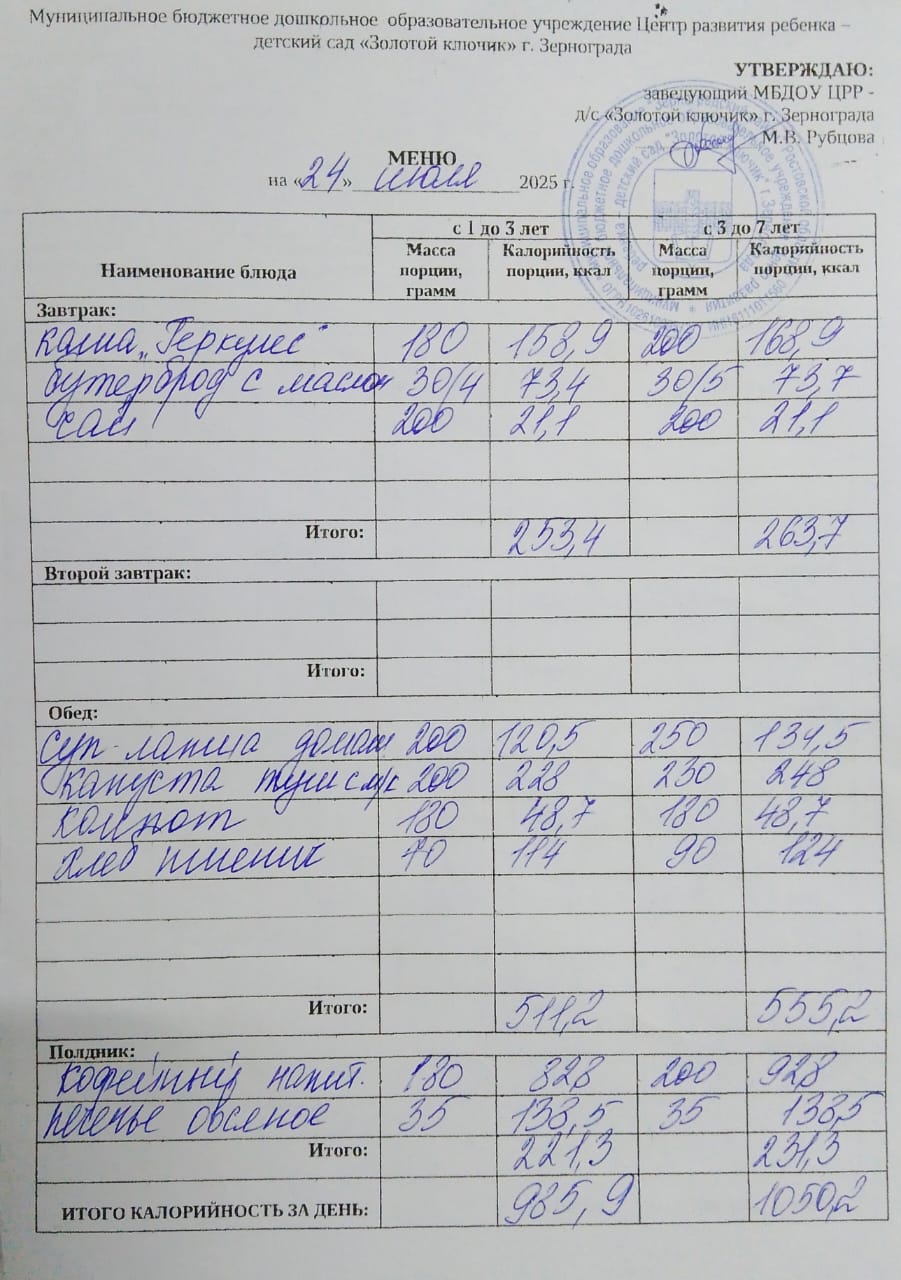 Муниципальное бюджетное дошкольное образовательное учреждение Центр развития ребенка –
детский сад «Золотой ключик» г. Зернограда
УТВЕРЖДАЮ:
заведующий МБДОУ ЦРР -
д/с «Золотой ключик» г. Зернограда
М.В. Рубцова
МЕНЮ
на «24» июля 2025 г.
Наименование блюда с 1 до 3 лет с 3 до 7 лет
Масса порции, грамм Калорийность порции, ккал Масса порции, грамм Калорийность порции, ккал
Завтрак:
каша „Геркулес" 180 158,9 200 168,9
бутерброд с маслом 30/4 73,4 30/5 73,7
чай 200 21,1 200 21,1
Итого: 253,4 263,7
Второй завтрак:
Итого:
Обед:
суп-лапша домаш 200 120,5 250 134,5
капуста туш с м/к 200 228 230 248
компот 180 48,7 180 48,7
хлеб пшенич 70 114 90 124
Итого: 511,2 555,2
Полдник:
кофейный напит. 180 828 200 928
печенье овсяное 35 138,5 35 138,5
Итого: 221,3 231,3
ИТОГО КАЛОРИЙНОСТЬ ЗА ДЕНЬ: 985,9 1050,2